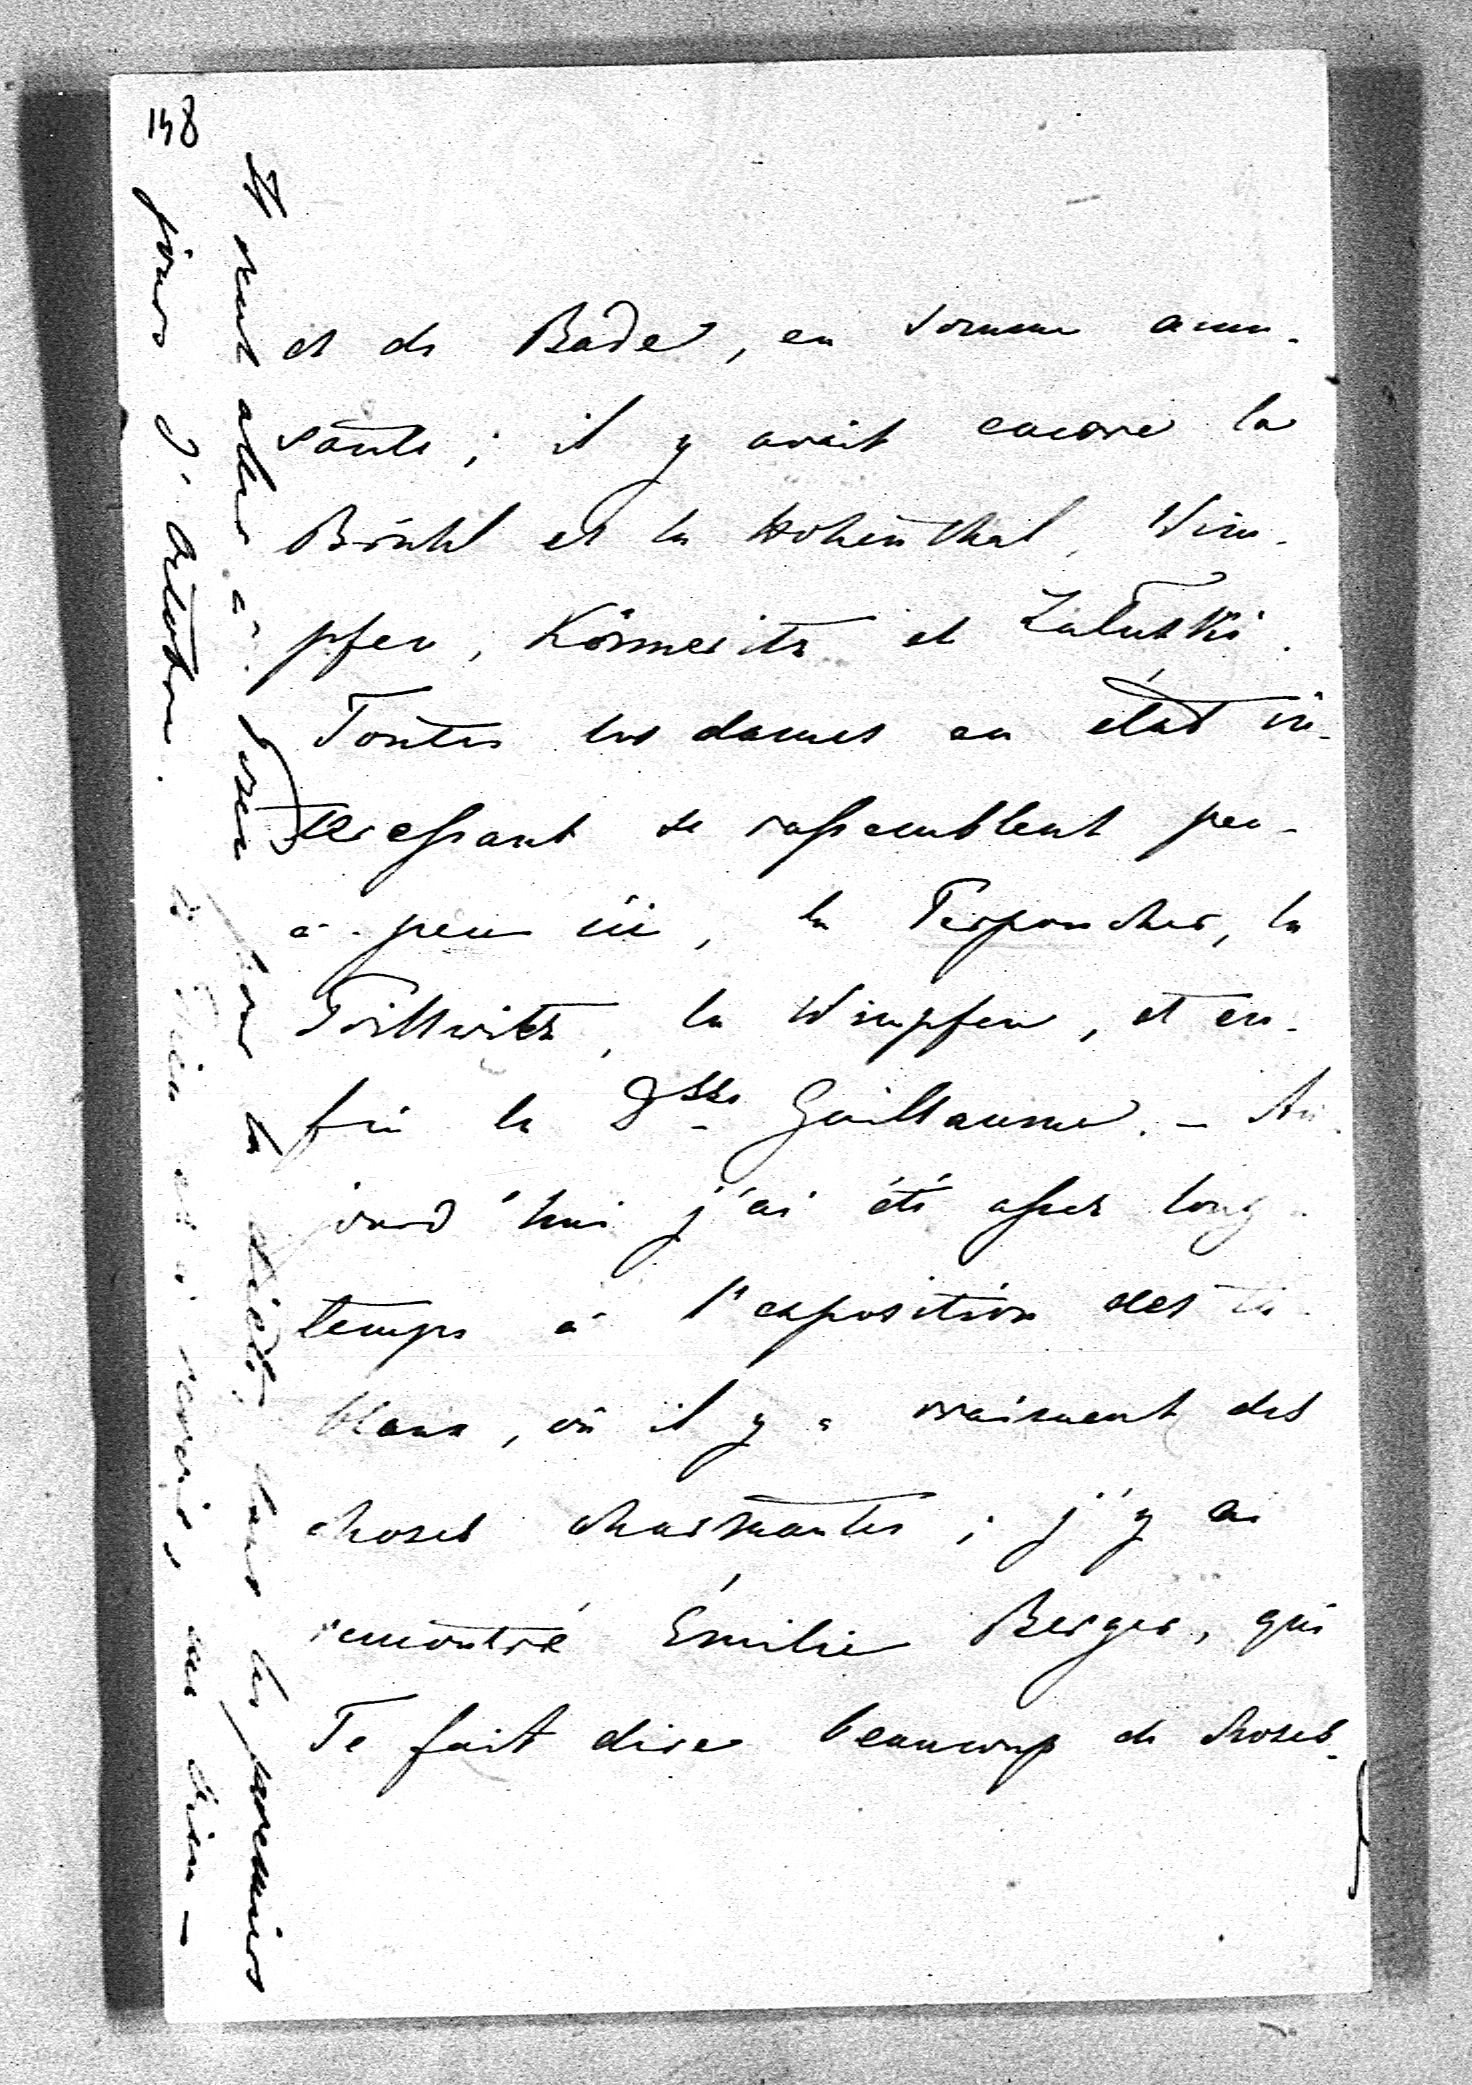 148
et de Bade, en somme amu-
sante; il y avait encore la
Brühl et la Hohenthal, Wim-
pfen, Könneritz et Zaluski.
Toutes les dames en état in-
téressant se rassemblent peu-
à-peu ici, la Perponcher, la
Tillwitz, la Wimpfen, et en-
fin la Dsse Guillaume. – Au-
jourd'hui j'ai été assez long-
temps à l'exposition des ta-
bleaux, où il y a vraiment des
choses charmantes; j'y ai
rencontré Émilie Berger, qui
Te fait dire beaucoup de choses.
Il veut aller à Posen pour la diète, dans les premiers
jours d'Octobre. à Dieu et à revoir, ma chère –